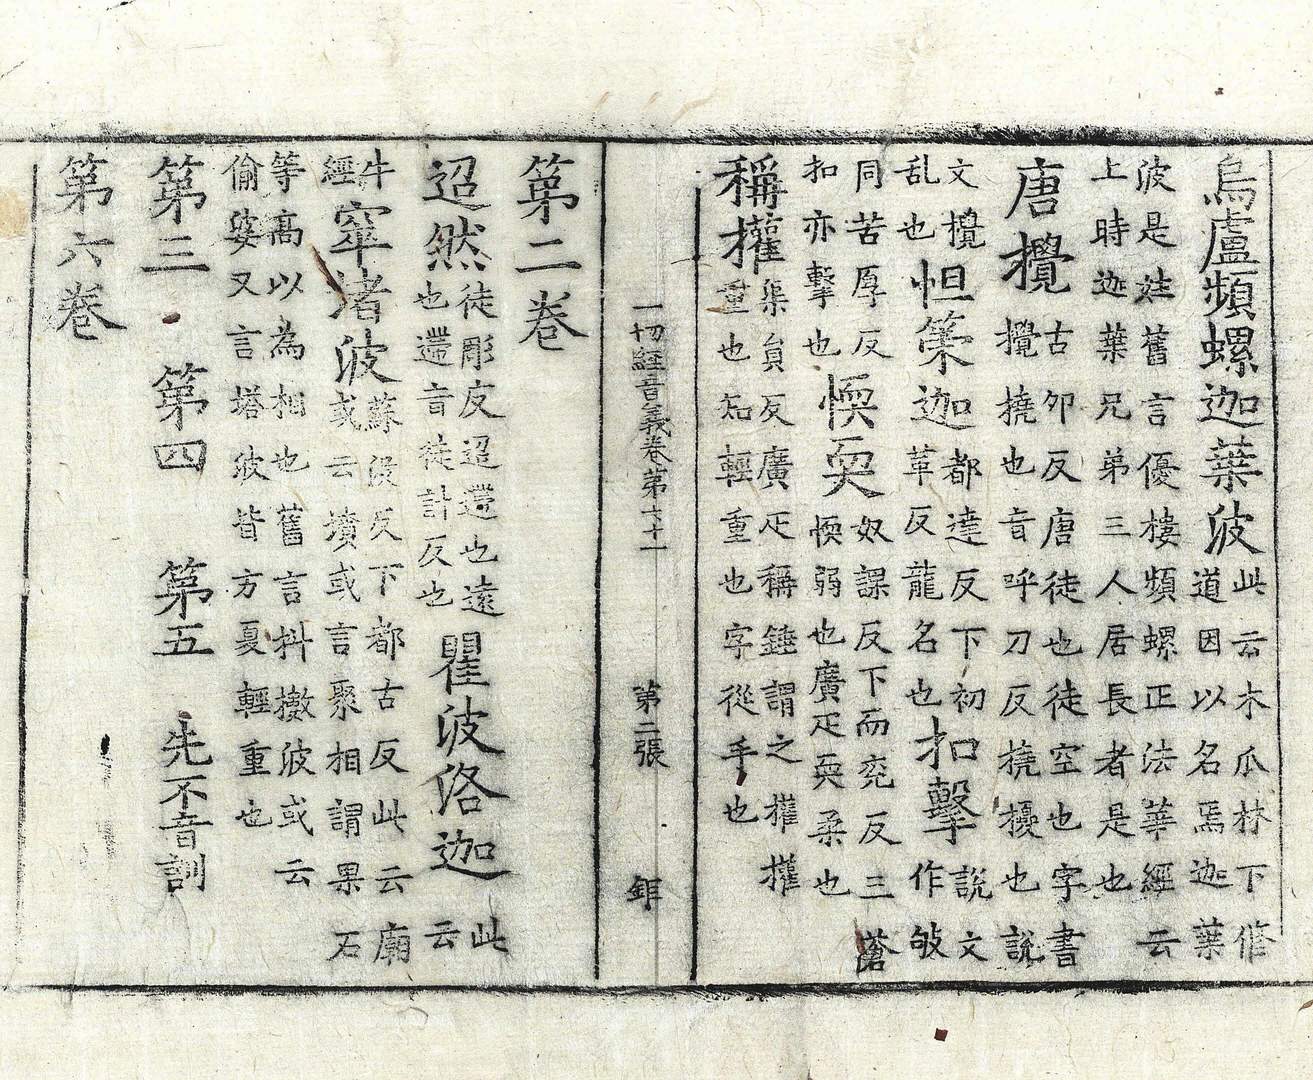 烏盧頻螺迦葉波此云木瓜林下修
道因以名焉迦葉
波是姓舊言優樓頻螺正法華經云
上時迦葉兄弟三人居長者是也
唐攪古卯反唐徒也徒空也字書
攪撓也音呼刀反撓擾也說
文攪
乱也
怛䇿迦都達反下初
革反龍名也
扣擊說文
作敂
同苦厚反
扣亦擊也
愞耎奴課反下而兖反三蒼
愞弱也廣疋耎柔也
稱權渠負反廣疋稱錘謂之權權
重也知輕重也字從手也
一切經音義卷第七十一　第二張　鉅
第二卷
迢然徒彫反迢遰也遠
也遰音徒計反也
瞿波洛迦此
云
牛
經
窣堵波蘇沒反下都古反此云廟
或云墳或言聚相謂累石
等高以為相也舊言抖擻波或云
偷婆又言塔波皆方夏輕重也
第三　第四　第五　先不音訓
第六卷